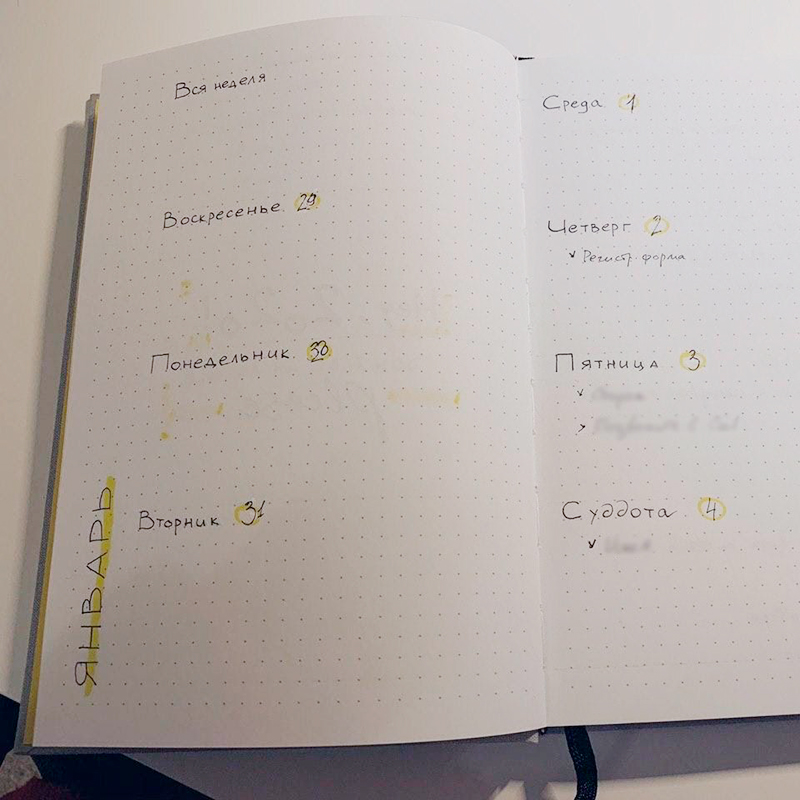 Вся неделя
Воскресенье 29
Понедельник 30
Вторник 31
ЯНВАРЬ
Среда 1
Четверг 2
Регистр. форма
Пятница 3
Суббота 4